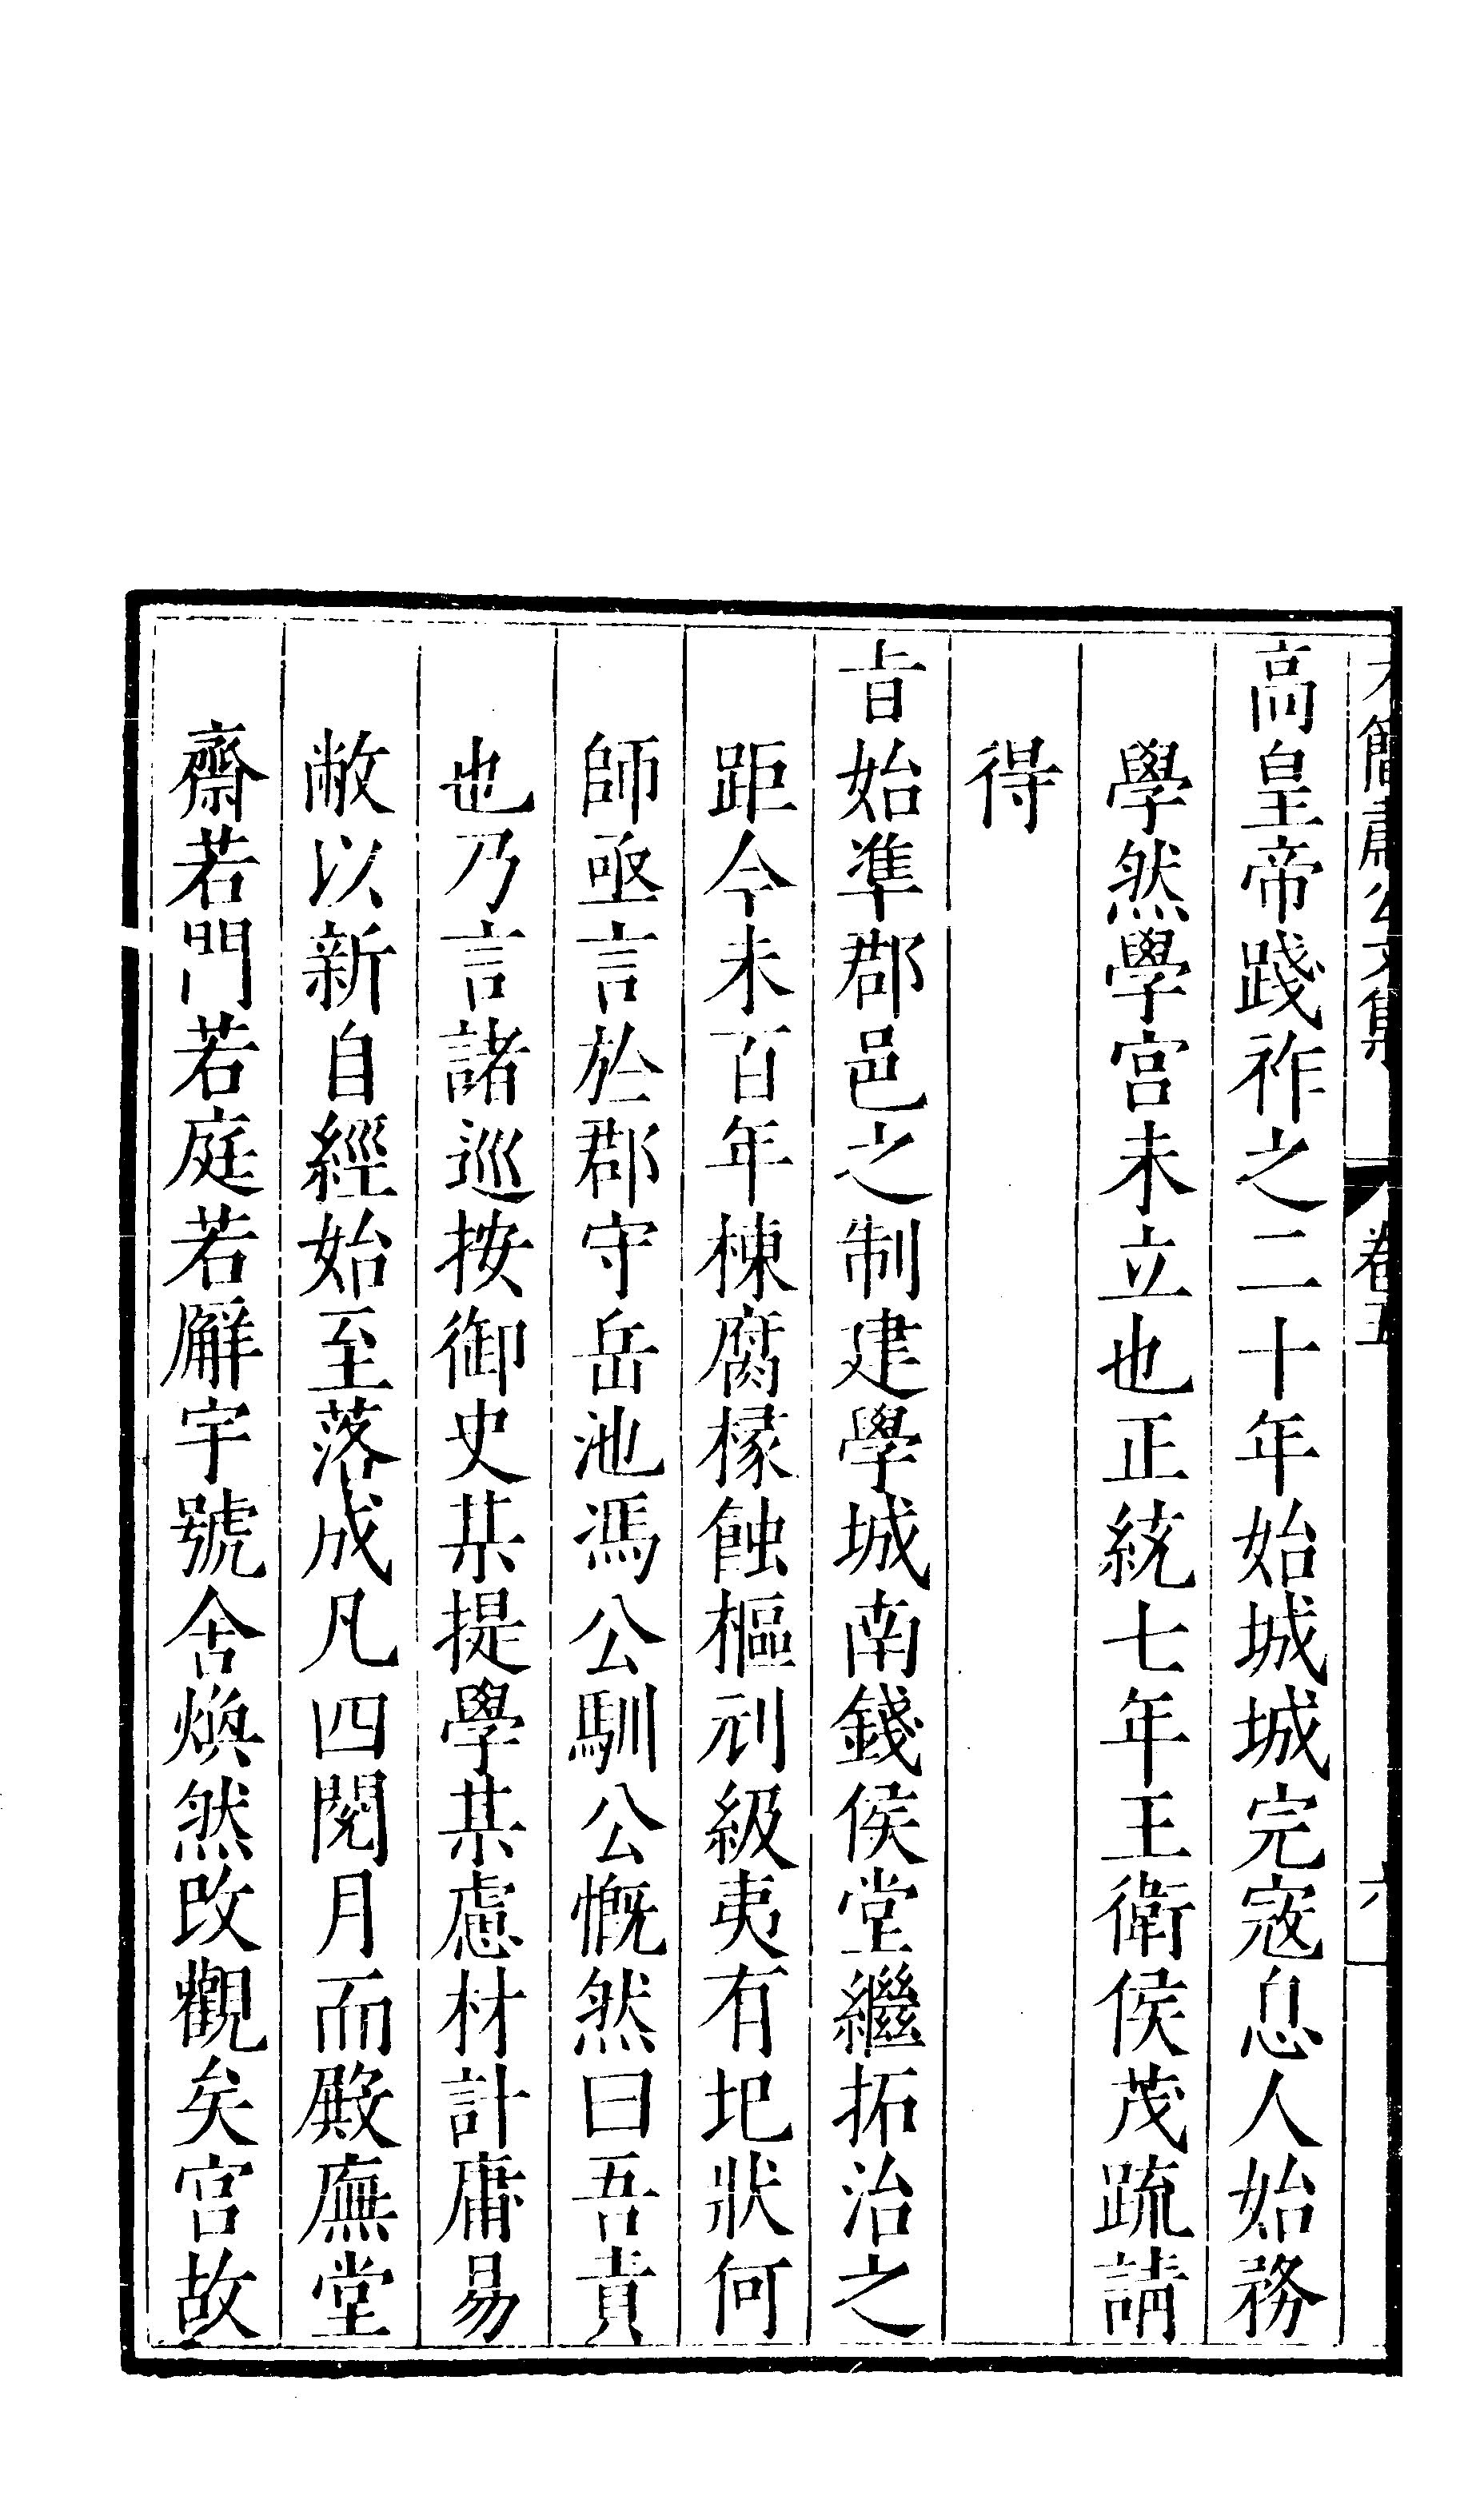 簡肅公文集 卷五 六
高皇帝踐祚之二十年始城城完寇息人始務
學然學宮未立也正統七年王衛侯茂疏請
得
旨始準郡邑之制建學城南錢侯堂繼拓治之
距今未百年棟腐椽蝕樞刓級夷有圮狀何
師亟言於郡守岳池馮公馴公慨然曰吾責
也乃言諸巡按御史某提學某慮材計庸易
敝以新自經始至落成凡四閱月而殿廡堂
齋若門若庭若廨宇號舍煥然改觀矣宮故